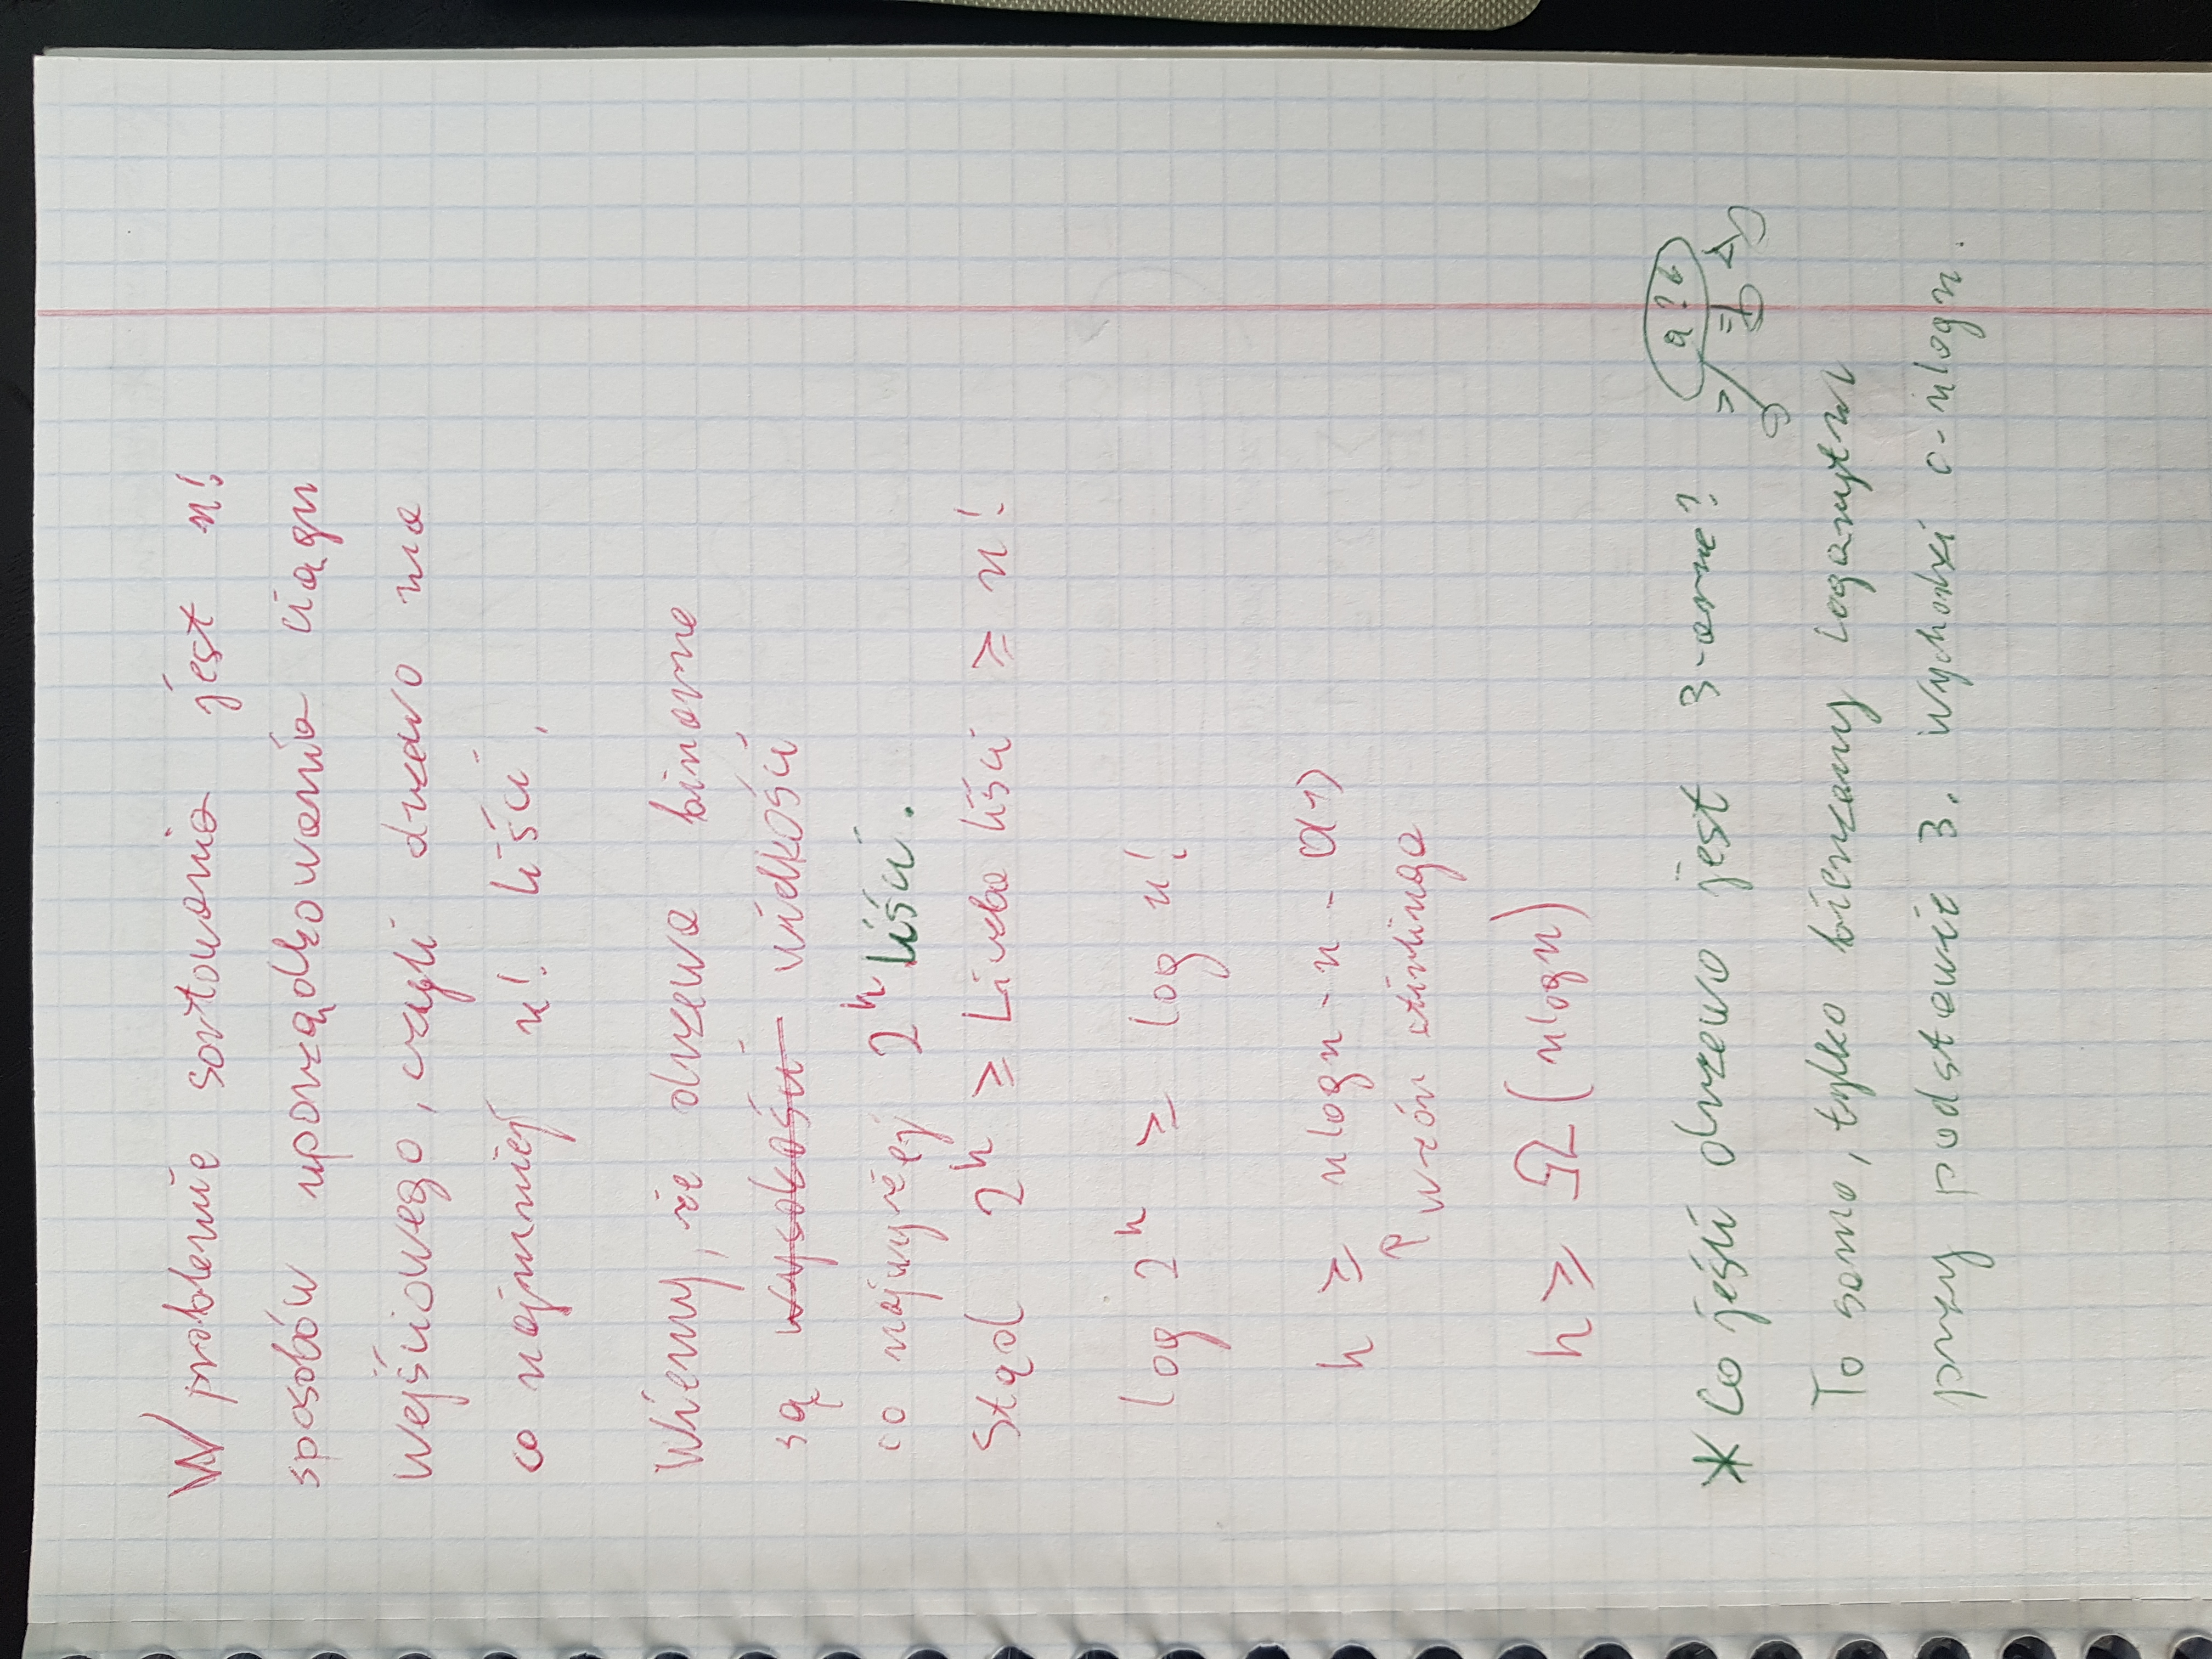 W problemie sortowania jest n!
sposobów uporządkowania ciągu
wejściowego, czyli drzewo ma
co najmniej n! liści.
Wiemy, że drzewa binarne
są wysokości wielkości
co najwyżej 2^h liści.
Stąd 2^h ≥ Liczba liści ≥ n!
log 2^h ≥ log n!
h ≥ n log n - n - O(1)
↑ wzór stirlinga
h ≥ Ω(n log n)
* Co jeśli drzewo jest 3-arne?
a ? b
> = <
To samo, tylko bierzemy logarytm
przy podstawie 3. Wychodzi c·n log n.